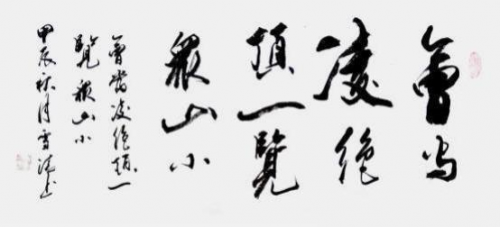 會当
凌绝
頂一覽
眾山小
會當凌绝頂一
覽眾山小
甲辰秋月雪